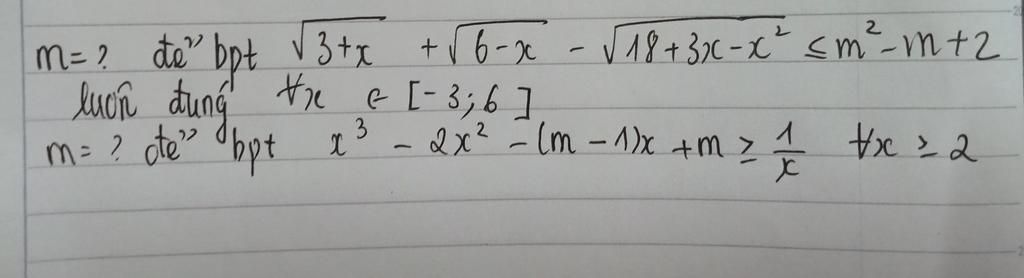 m = ? để bpt √(3+x) + √(6-x) - √(18+3x-x²) ≤ m² - m + 2
luôn đúng ∀x ∈ [-3; 6]
m = ? để bpt x³ - 2x² - (m - 1)x + m ≥ 1/x ∀x ≥ 2